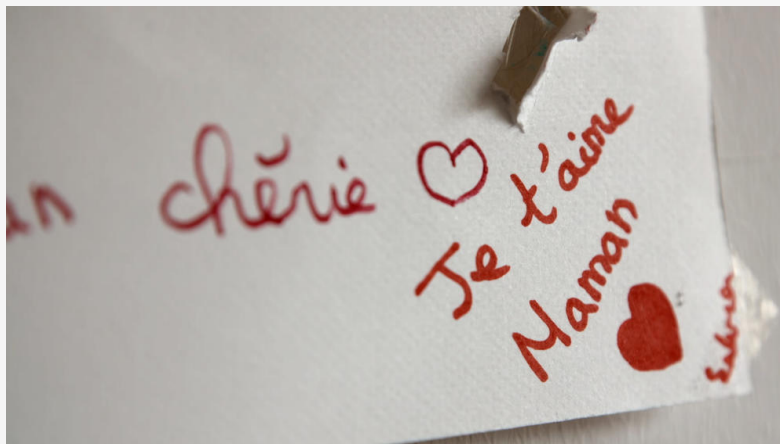 an chĕrie
Je t'aime
Maman